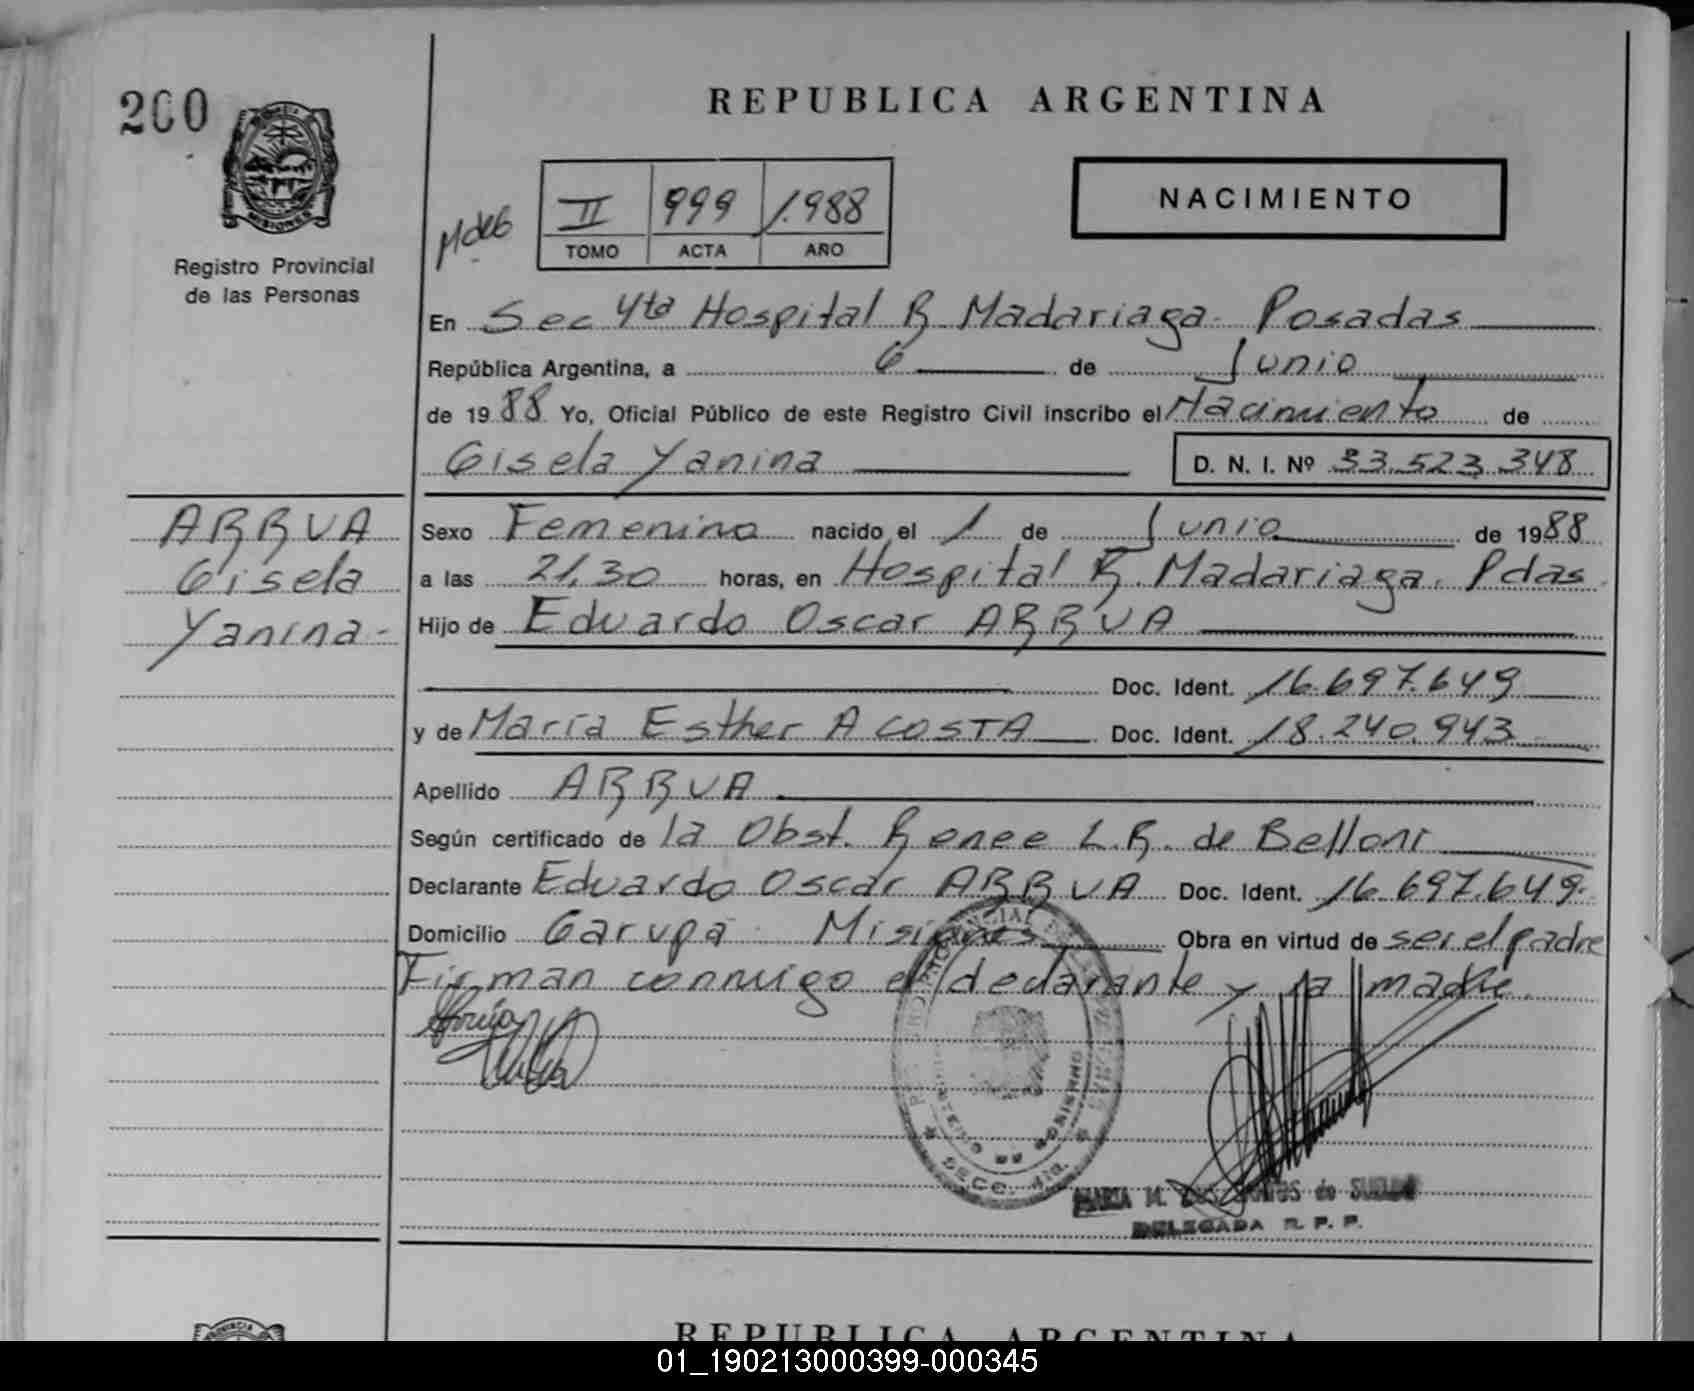 200
REPUBLICA ARGENTINA
MISIONES
Registro Provincial
de las Personas
II 999 1.988
TOMO ACTA AÑO
NACIMIENTO
En Sec 4ta Hospital R Madariaga. Posadas
República Argentina, a 6 de Junio
de 1988 Yo, Oficial Público de este Registro Civil inscribo el Nacimiento de
Gisela Yanina D. N. I. Nº 33.523.348
ARRUA
Gisela
Yanina-
Sexo Femenino nacido el 1 de Junio de 1988
a las 21,30 horas, en Hospital R. Madariaga. Pdas
Hijo de Eduardo Oscar ARRUA
Doc. Ident. 16.697.649
y de María Esther ACOSTA Doc. Ident. 18.240.943
Apellido ARRUA
Según certificado de la Obst. Renee L.R. de Belloni
Declarante Eduardo Oscar ARRUA Doc. Ident. 16.697.649.
Domicilio Garupa Misiones Obra en virtud de ser el padre
Firman conmigo el declarante y la madre.
SECC. 4ta.
MARIA M. de
DELEGADA R. P. P.
REPUBLICA ARGENTINA
01_190213000399-000345